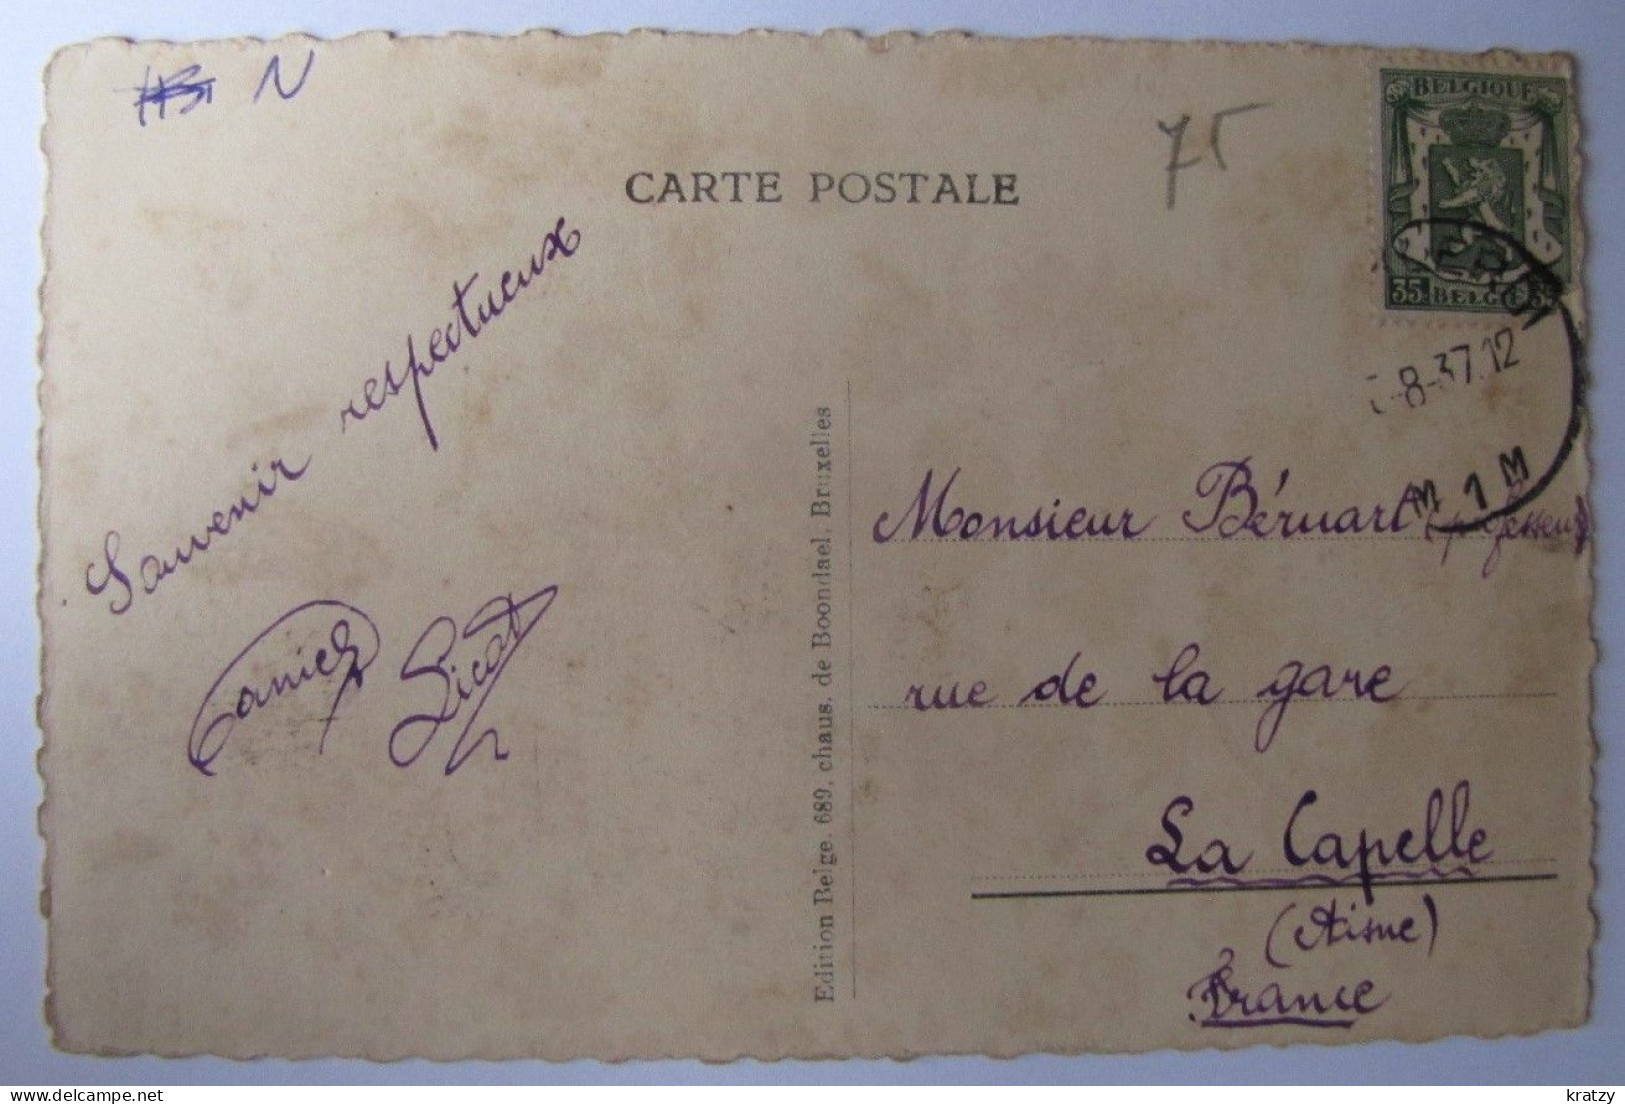 N
75
CARTE POSTALE
BELGIQUE
35 BELGIË 35
-8-37.12
M 1 M
Souvenir respectueux
Edition Belge. 689, chaus. de Boondael, Bruxelles
Monsieur Bérnart (professeur)
rue de la gare
La Capelle
(Aisne)
France
delcampe.net
kratzy